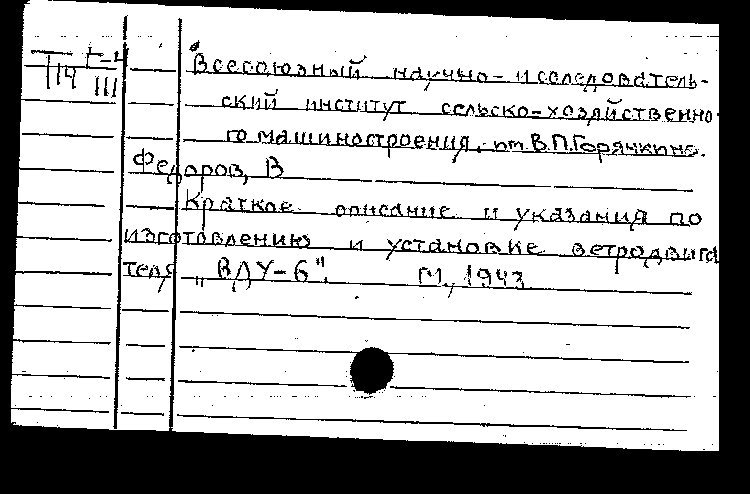 Всесоюзный научно-исследователь-
ский институт сельско-хозяйственно-
го машиностроения, им. В.П.Горячкина.
Федоров, В
Краткое описание и указания по
изготовлению и установке ветродвига
теля „ВДУ-6". М., 1943
III